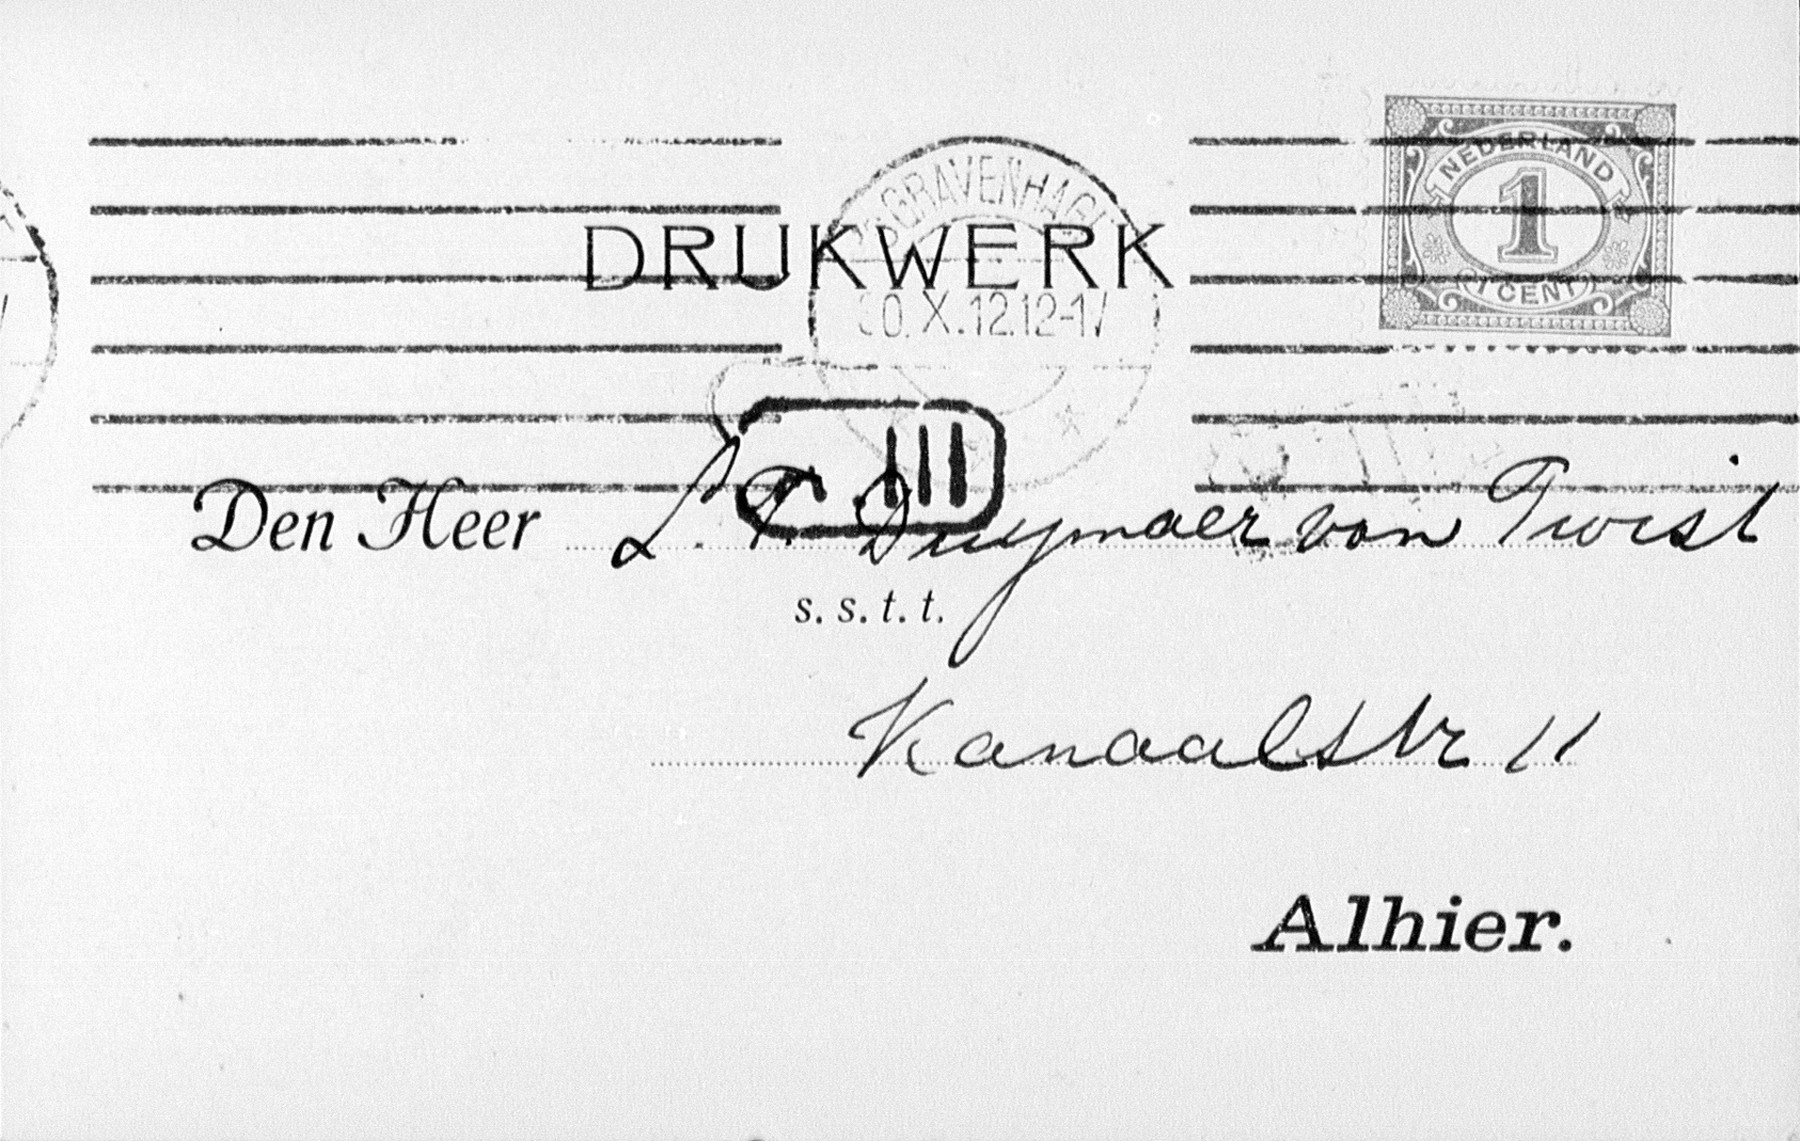 NEDERLAND
1
(1 CENT)
'S GRAVENHAGE
DRUKWERK
30.X.12.12-1V
III
Den Heer L. T. Duymaer van Twist
s. s. t. t.
Kanaalstr 11
Alhier.